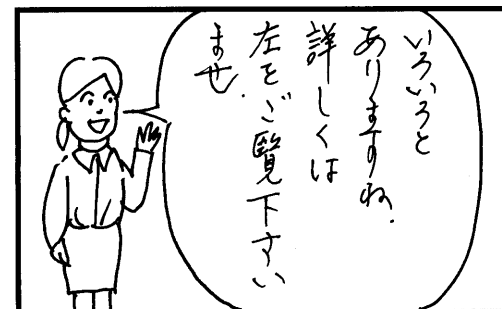 いろいろと
ありますね.
詳しくは
左をご覧下さい
ませ.